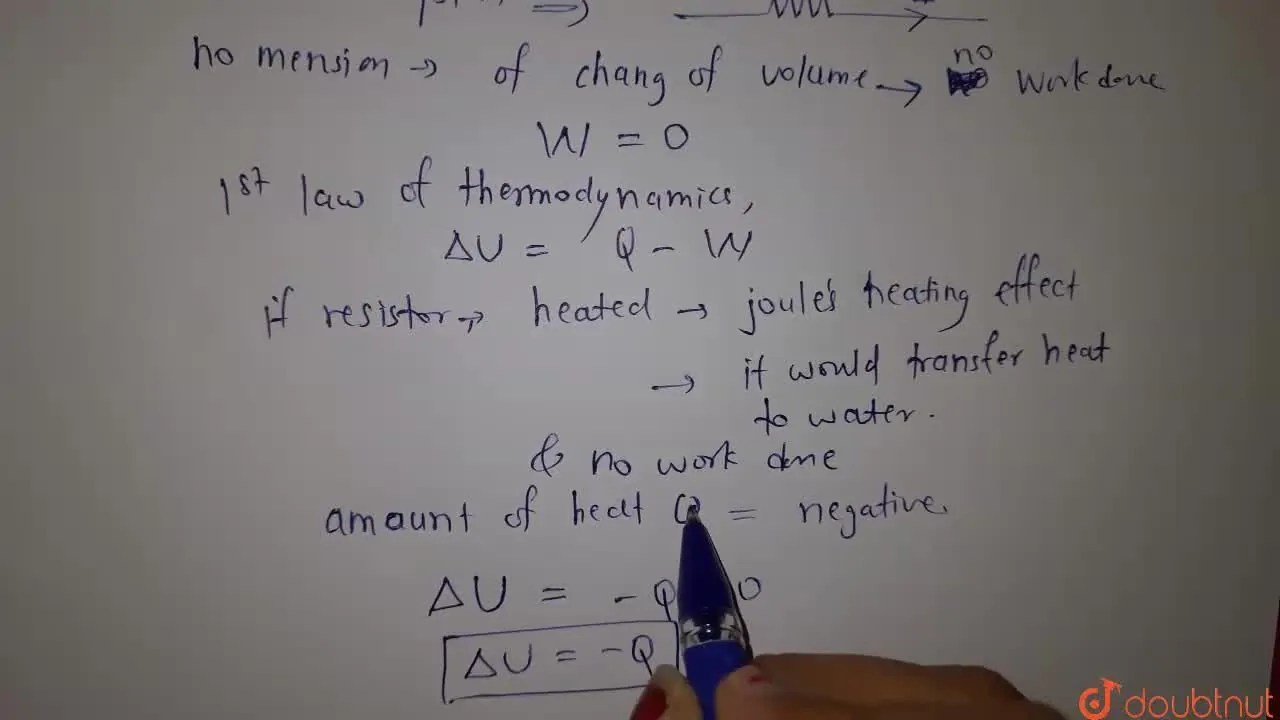 no mension → of chang of volume → no work done
W = 0
1st law of thermodynamics,
ΔU = Q - W
if resistor → heated → joule's heating effect
→ it would transfer heat
to water.
& no work done
amaunt of heat Q = negative.
ΔU = -Q 0
ΔU = -Q
doubtnut